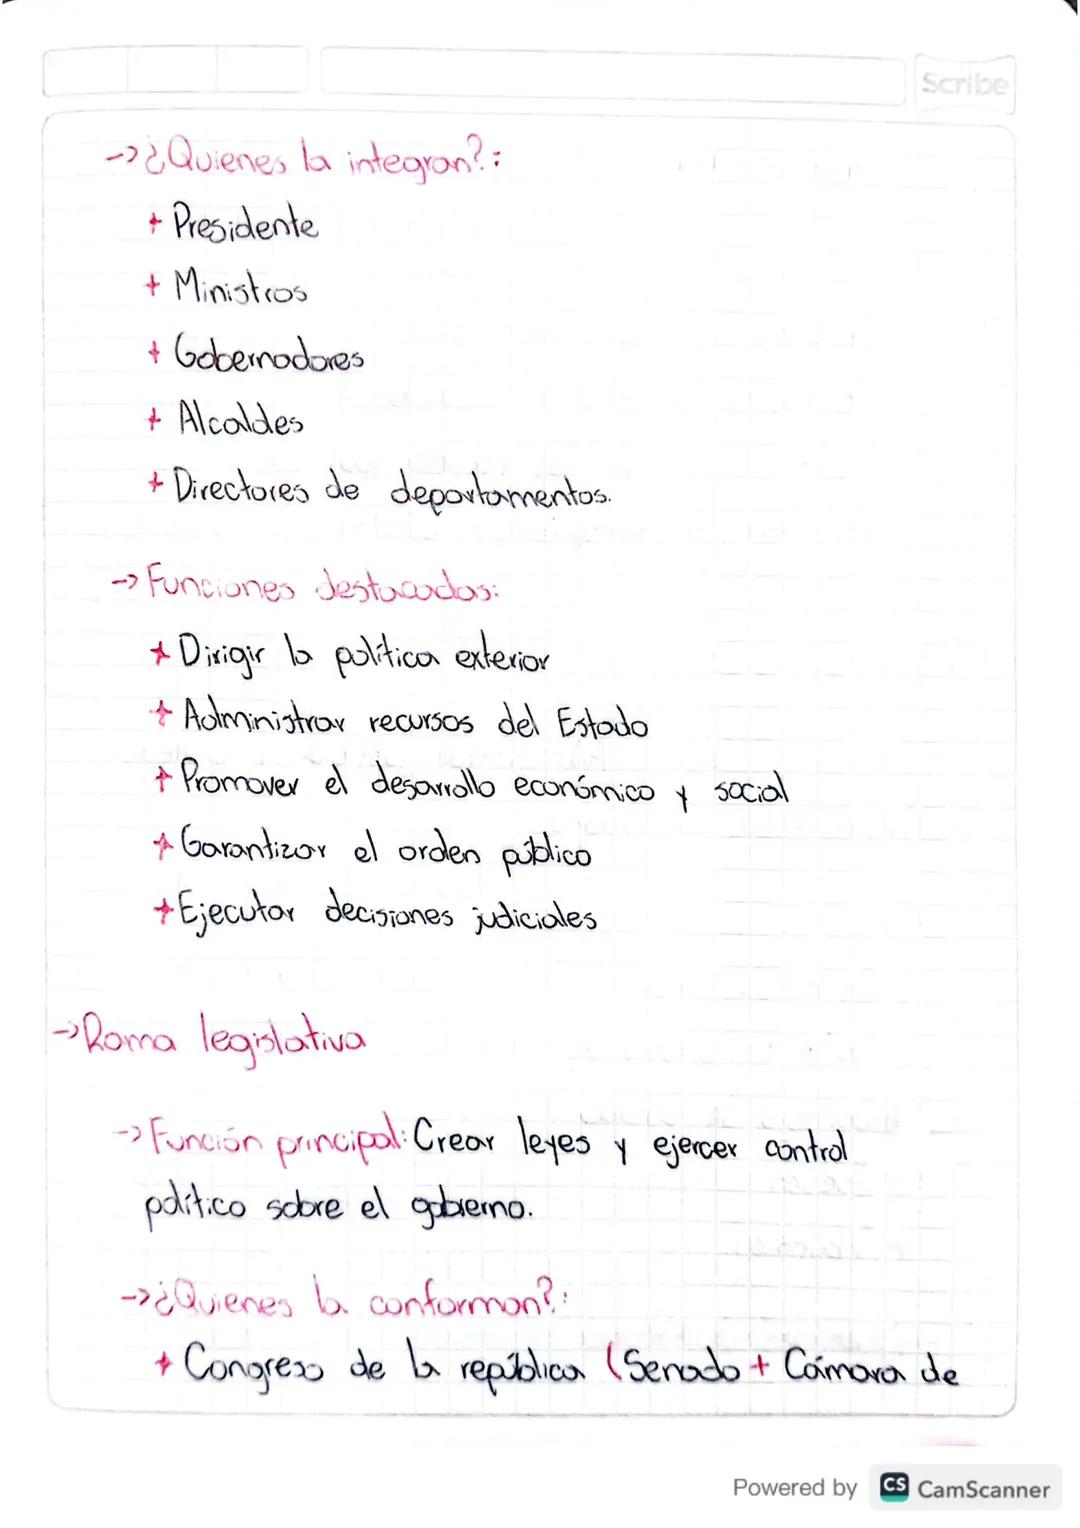 Scribe
->¿Quienes la integran?:
+ Presidente
+ Ministros
+ Gobernadores
+ Alcaldes
+ Directores de departamentos.
-> Funciones destacadas:
+ Dirigir la política exterior
+ Administrar recursos del Estado
+ Promover el desarrollo económico y social
+ Garantizar el orden público
+ Ejecutar decisiones judiciales
-> Rama legislativa
-> Función principal: Crear leyes y ejercer control
político sobre el gobierno.
->¿Quienes la conforman?:
+ Congreso de la república (Senado + Cámara de
Powered by CS CamScanner